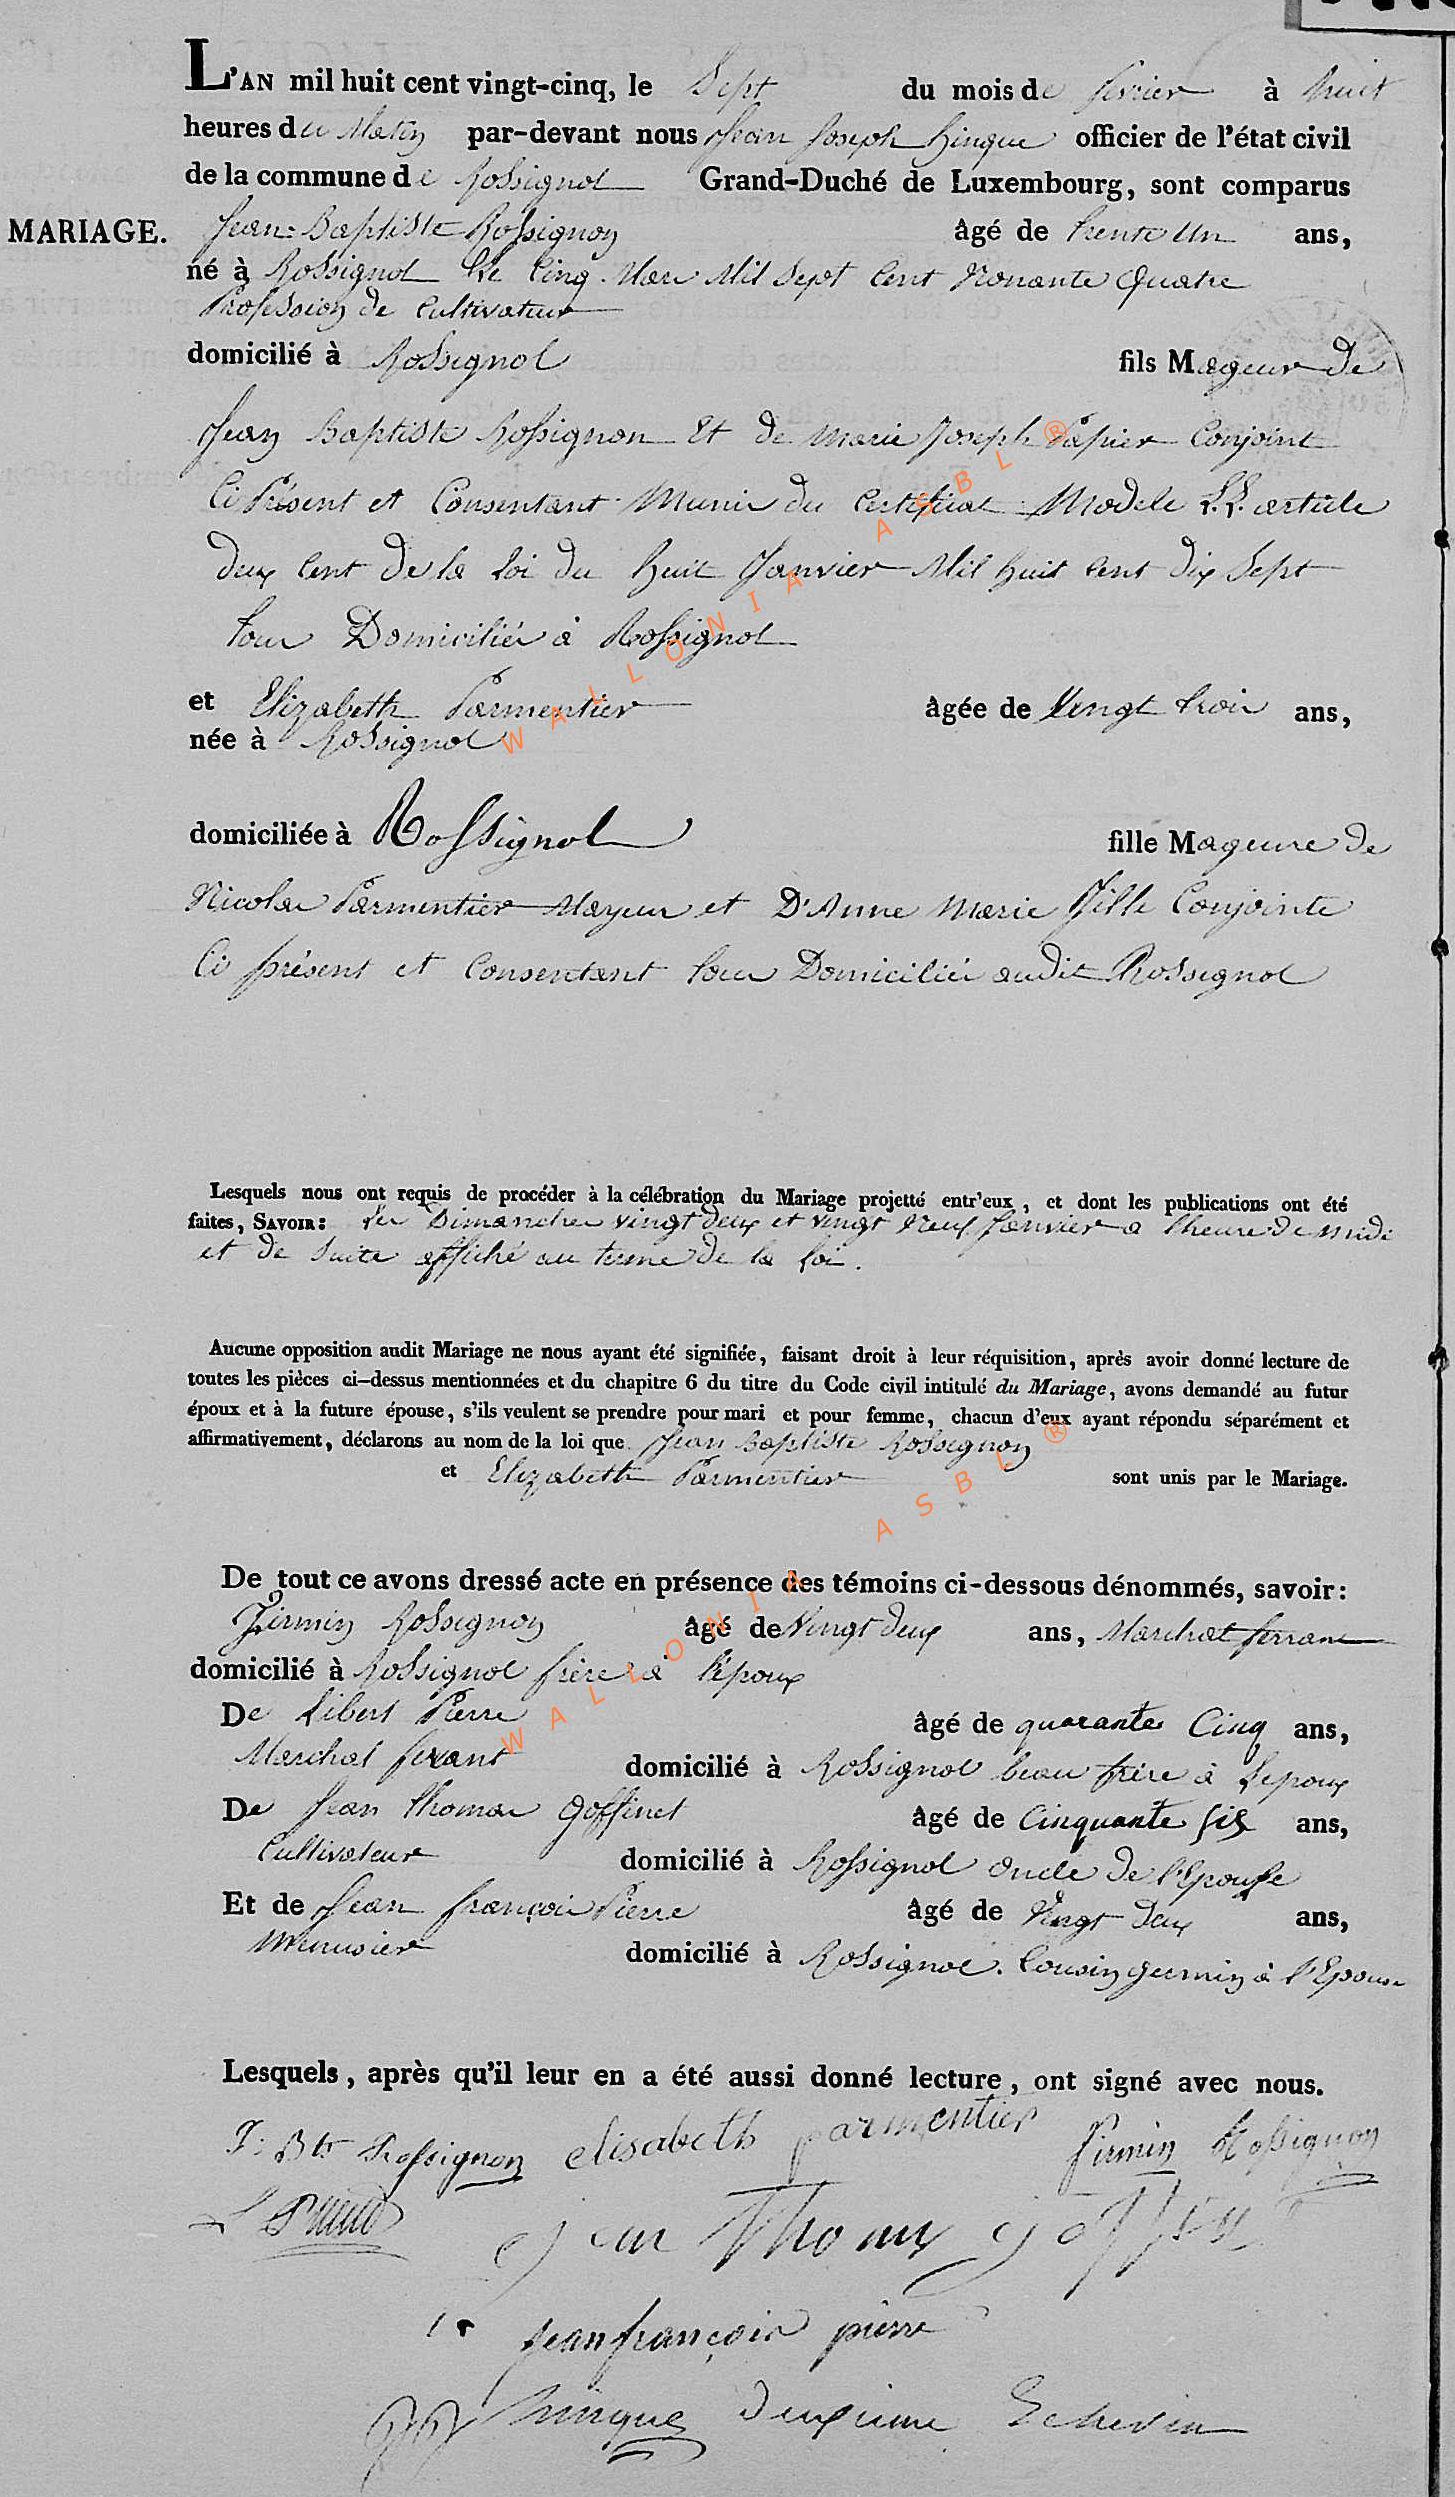 L'AN mil huit cent vingt-cinq, le Sept du mois de fevrier à huit
heures du Matin par-devant nous Jean Joseph hinque officier de l'état civil
de la commune de Rossignol Grand-Duché de Luxembourg, sont comparus
MARIAGE. Jean-Baptiste Rossignon âgé de trente Un ans,
né à Rossignol Le Cinq Mars Mil Sept Cent Nonante Quatre
Profession de Cultivateur
domicilié à Rossignol fils Mageur de
Jean Baptiste Rossignon Et de Marie Joseph Papier Conjoint
Ci Présent et Consentant Munis du Certificat Modele L.L. article
deux Cent de la Loi du huit Janvier Mil huit Cent dix Sept
tous Domiciliés à Rossignol
et Elizabeth Parmentier âgée de Vingt trois ans,
née à Rossignol
domiciliée à Rossignol fille Mageure de
Nicolas Parmentier Mayeur et D'Anne Marie Jille Conjointe
Ci présent et Consentant tous Domiciliés audit Rossignol
Lesquels nous ont requis de procéder à la célébration du Mariage projetté entr'eux, et dont les publications ont été
faites, SAVOIR: Les Dimanches vingt deux et vingt Neuf Janvier a l'heure de midi
et de Suite affiché au terme de la Loi.
Aucune opposition audit Mariage ne nous ayant été signifiée, faisant droit à leur réquisition, après avoir donné lecture de
toutes les pièces ci-dessus mentionnées et du chapitre 6 du titre du Code civil intitulé du Mariage, avons demandé au futur
époux et à la future épouse, s'ils veulent se prendre pour mari et pour femme, chacun d'eux ayant répondu séparément et
affirmativement, déclarons au nom de la loi que Jean Baptiste Rossignon
et Elizabeth Parmentier sont unis par le Mariage.
De tout ce avons dressé acte en présence des témoins ci-dessous dénommés, savoir:
Firmin Rossignon âgé de Vingt deux ans, Marchal ferrant
domicilié à Rossignol frere à l'époux
De Libert Pierre âgé de quarante Cinq ans,
Marchal ferant domicilié à Rossignol beau frère à Lepoux
De Jean thomas Goffinet âgé de Cinquante six ans,
Cultivateur domicilié à Rossignol Oncle de l'Epouse
Et de Jean françois Pierre âgé de Vingt deux ans,
Menusier domicilié à Rossignol. Cousin germin à l'Epouse
Lesquels, après qu'il leur en a été aussi donné lecture, ont signé avec nous.
J: Bte Rossignon elisabeth parmentier firmin Rossignon
jean Thomas goffinet
jean françois pierre
hinque deuxieme Echevin
WALLONIA ASBL ®
WALLONIA ASBL ®